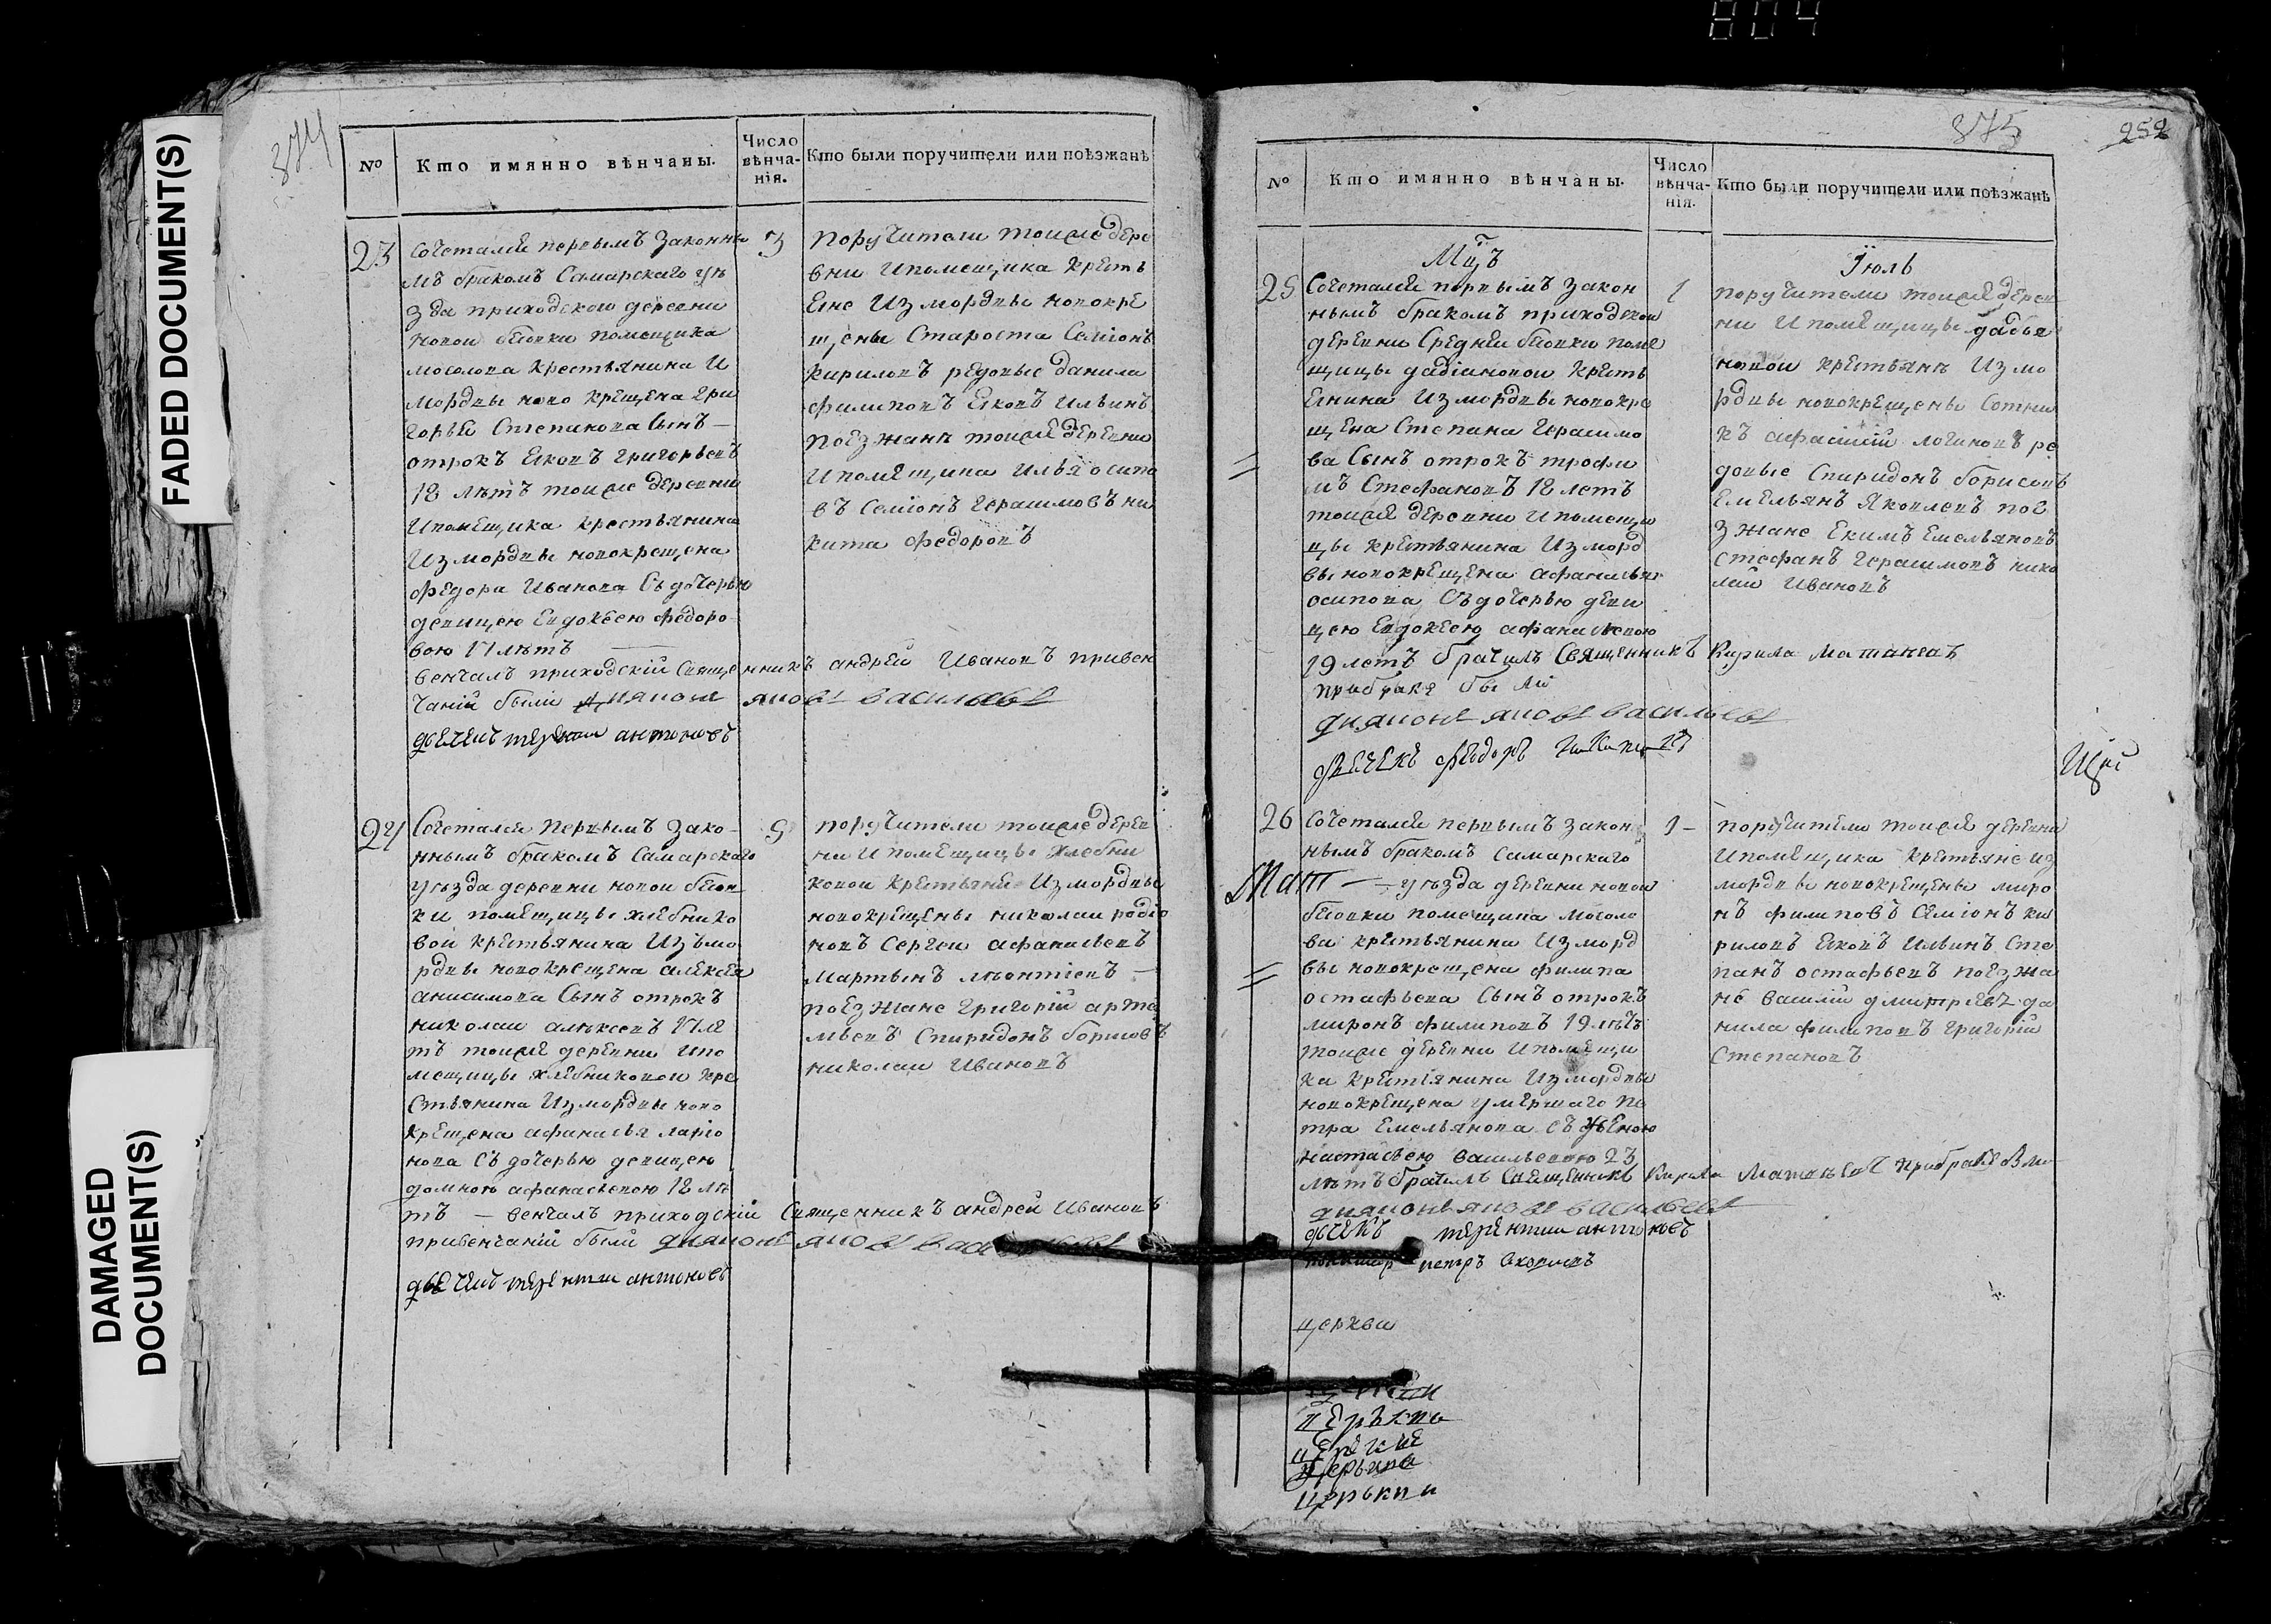 804
FADED DOCUMENT(S)
DAMAGED
DOCUMENT(S)
374
№
Кто имянно вѣнчаны.
Число
вѣнча-
нія.
Кто были поручители или поѣзжанѣ
23
сочетался первымъ законны
мъ бракомъ Самарскаго уѣ
зда приходскои деревни
новои помещика
мосолова крестьянина и
мордвы ново крещена гри
горья Степанова Сынъ —
отрокъ григорьевъ
18 лѣтъ тоиже деревни
ипомещика крестьянина
Измордвы новокрещена
федора Иванова Съ дочерью
девицею Евдокеею федоро
вою 17 лѣтъ —
венчалъ приходскій Священникъ андрей Ивановъ привен
чаніи были васильевы
терентеи антоновъ
3
поручители тоиже дере
вни ипомещика кресть
яне Измордвы новокре
щены Староста Семіонъ
кирилов редовые данила
филиповъ Яковъ Ильинъ
поезжанѣ тоиже деревни
ипомещика илья осипо
въ Семіонъ герасимовъ ни
кита федоровъ
24
Сочетался Первымъ зако-
ннымъ бракомъ Самарскаго
уѣзда деревни новои
ки помещицы хлебнико
вои крестьянина Изъ мо
рдвы новокрещена алексея
анисимова Сынъ отрокъ
николаи алексеевъ 17 ле
тъ тоиже деревни ипо
мещицы хлебниковои кре
стьянина Измордвы ново
крещена афанасья ларіо
нова Съ дочерью девицею
домною афанасьевою 18 лѣ
тъ — венчалъ приходскій Священникъ андрей Ивановъ
привенчаніи были васильевы
терентии антоновъ
5
поручители тоиже дерев
ни ипомещицы хлебни
ковои крестьяне Измордвы
новокрещены николаи родіо
новъ Сергеи афанасьевъ
мартынъ леонтіевъ —
поезжане григорій арте
мьевъ Спиридонъ борисовъ
николаи Ивановъ
375
252
№
Кто имянно вѣнчаны.
Число
вѣнча-
нія.
Кто были поручители или поѣзжанѣ
Мцъ
Іюль
25
Сочетался первымъ закон
нымъ бракомъ приходскои
деревни Среднеи поме
щицы дадіановои кресть
янина Измордвы новокре
щена Степана герасимо
ва Сынъ отрокъ трофи
мъ Стефановъ 18 летъ
тоиже деревни ипомещи
цы крестьянина Изморд
вы новокрещена афанасья
осипова Съ дочерью деви
цею Евдокеею афанасьевою
19 летъ брачилъ Священникъ Кирила
прибраке были
васильевы
федоръ
1
поручители тоиже дерев
ни ипомещицы дадья
новои крестьянъ Измо
рдвы новокрещены Сотни
къ афасіній логиновъ ре
довые Спиридонъ борисовъ
Емельянъ Яковлевъ пое
зжане Екимъ Емельяновъ
Стефанъ герасимовъ нико
лаи Ивановъ
26
Сочетался первымъ закон
нымъ бракомъ Самарскаго
— уѣзда деревни новои
помещика мосоло
ва крестьянина Изморд
вы новокрещена филипа
остафьева Сынъ отрокъ
миронъ филиповъ 19 лѣтъ
тоиже деревни ипомещи
ка крестіянина Измордвы
новокрещена умершаго пе
тра Емельянова съ женою
настасьею васильевою 23
лѣтъ брачилъ Священникъ Кирила прибраке были
васильевы
терентии антоновъ
петръ
1 —
поручители тоиже деревни
ипомещика крестьяне из
мордвы новокрещены миро
нъ филиповъ Семіонъ ки
риловъ Яковъ Ильинъ Сте
панъ остафьевъ поезжа
не василіи дмитріевъ да
нила филиповъ григорій
Степановъ
церкви